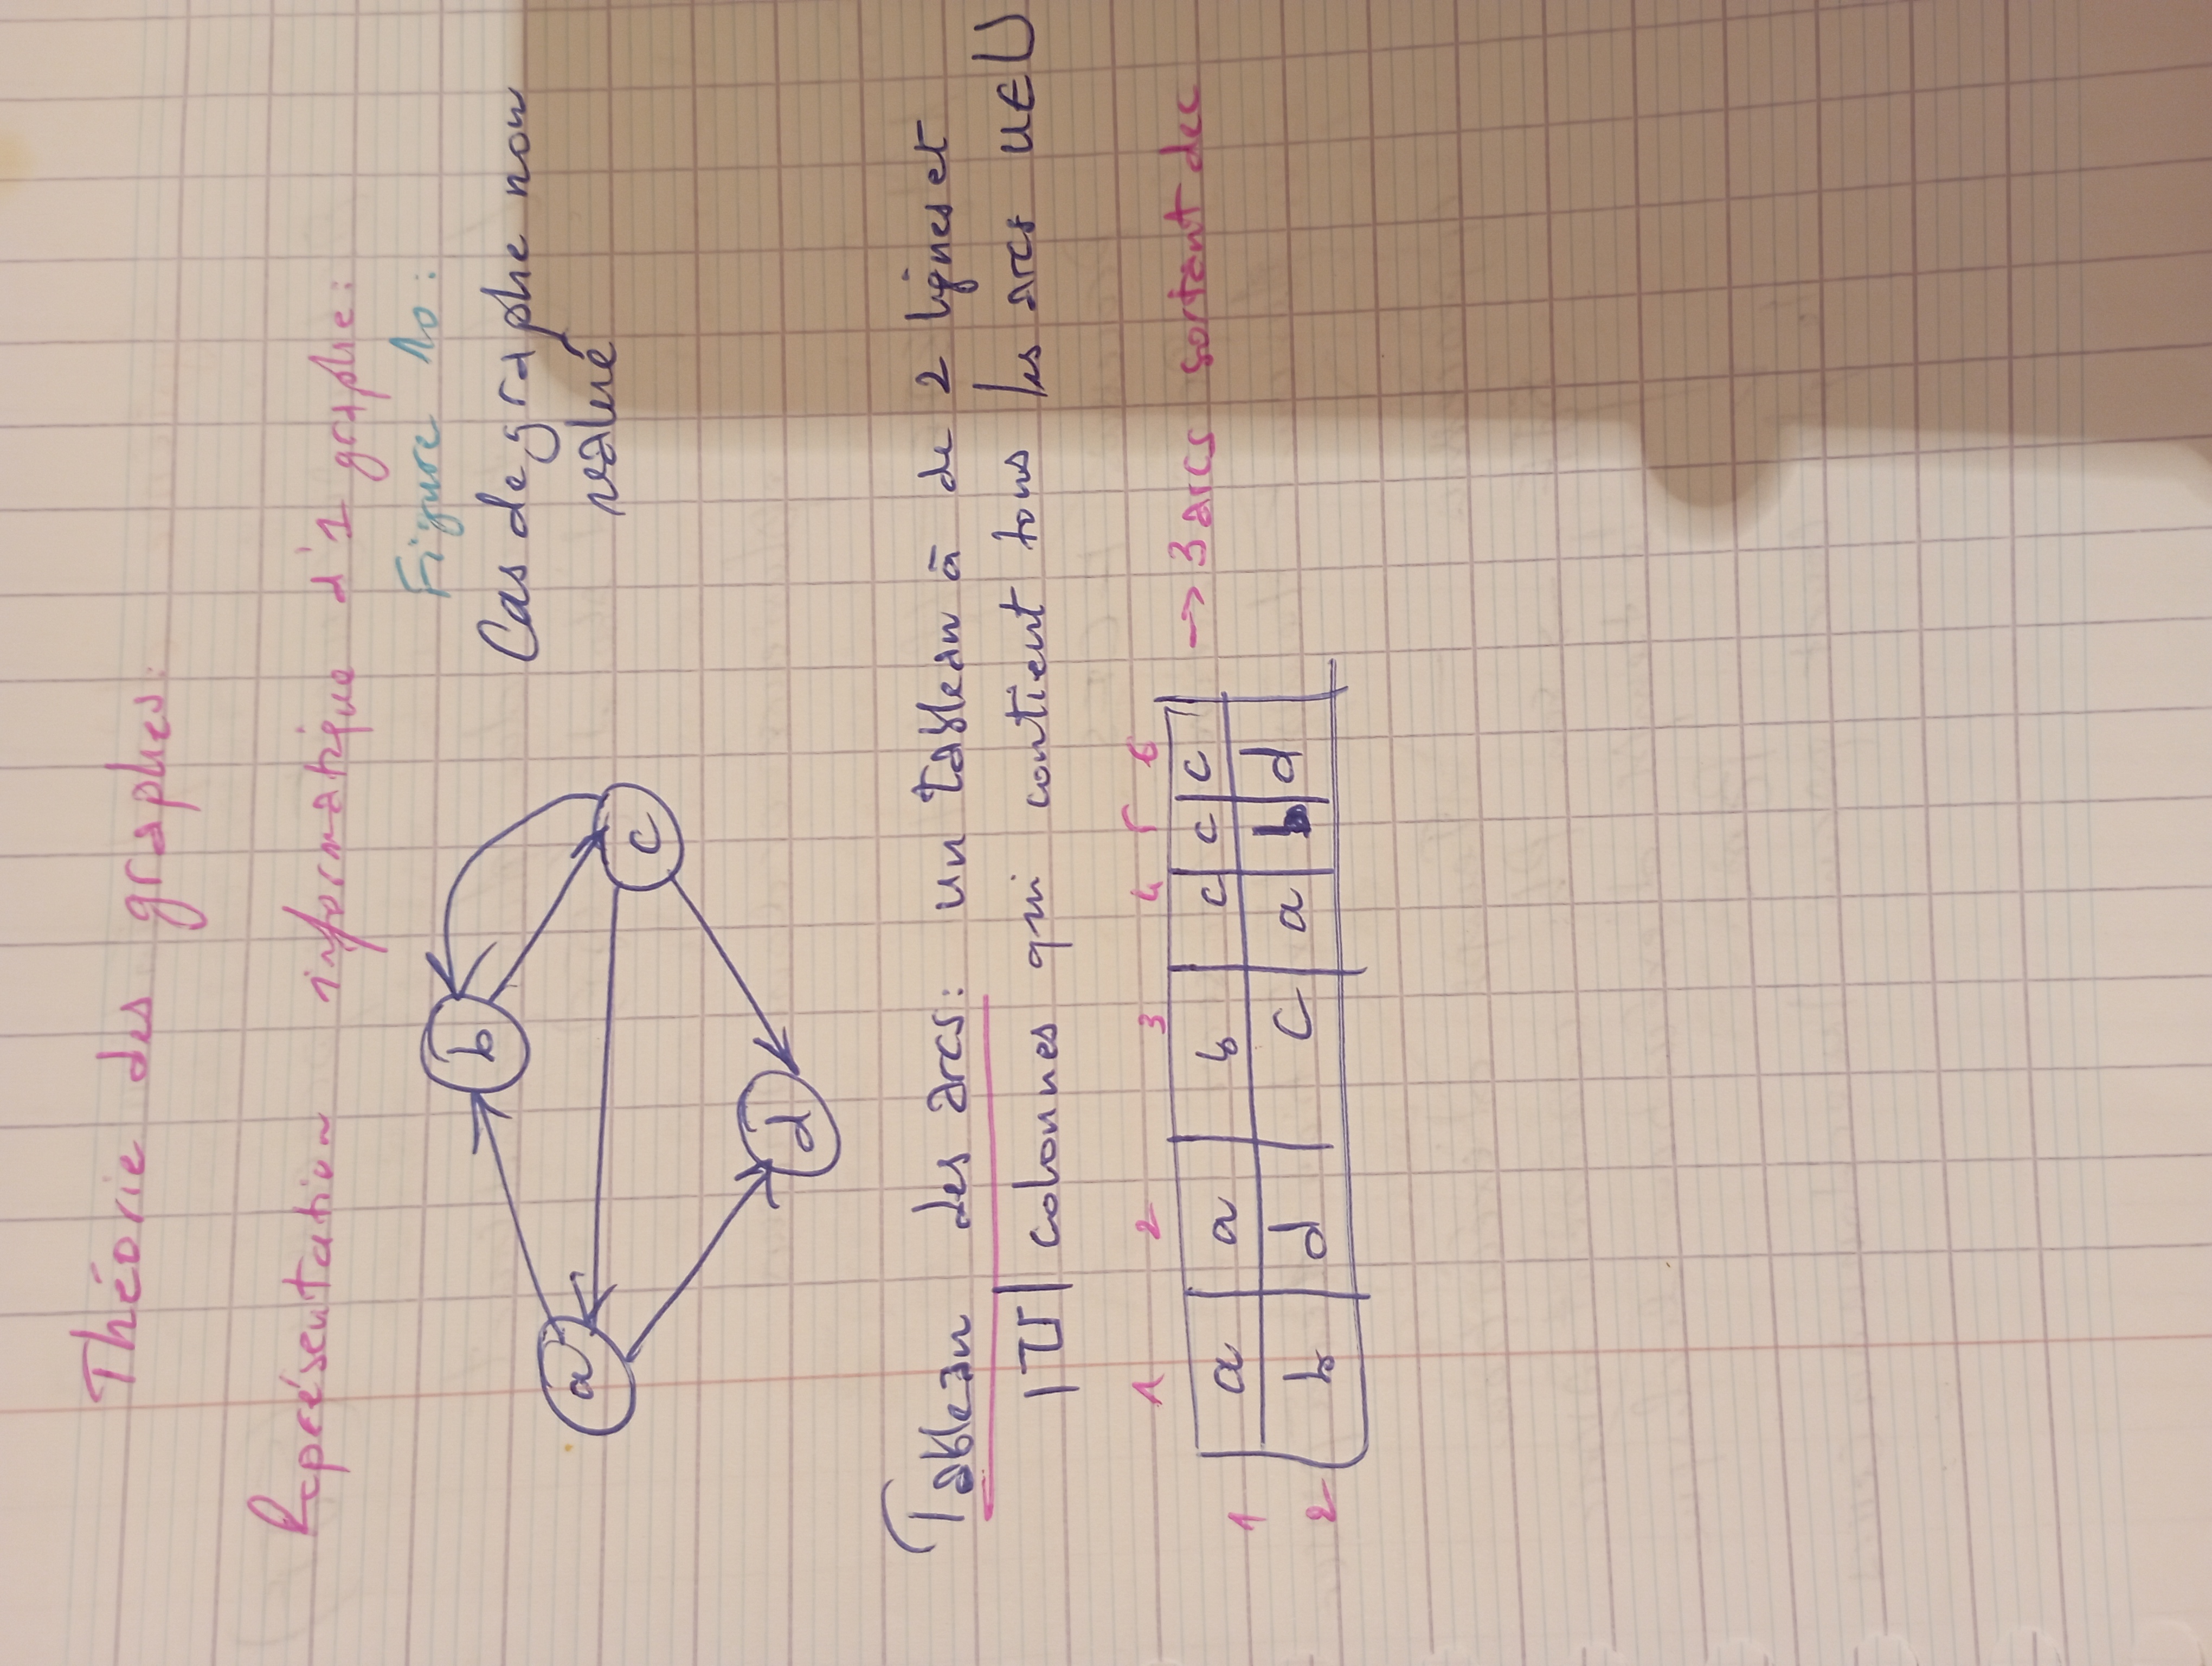 Théorie des graphes:
Représentation informatique d'1 graphe:
Figure 10:
Cas de graphe non
valué
a
b
c
d
Tableau des arcs: un tableau à de 2 lignes et
|U| colonnes qui contient tous les arcs u∈U
1 2 3 4 5 6
1 a a b c c c → 3 arcs sortant de c
2 b d c a b d